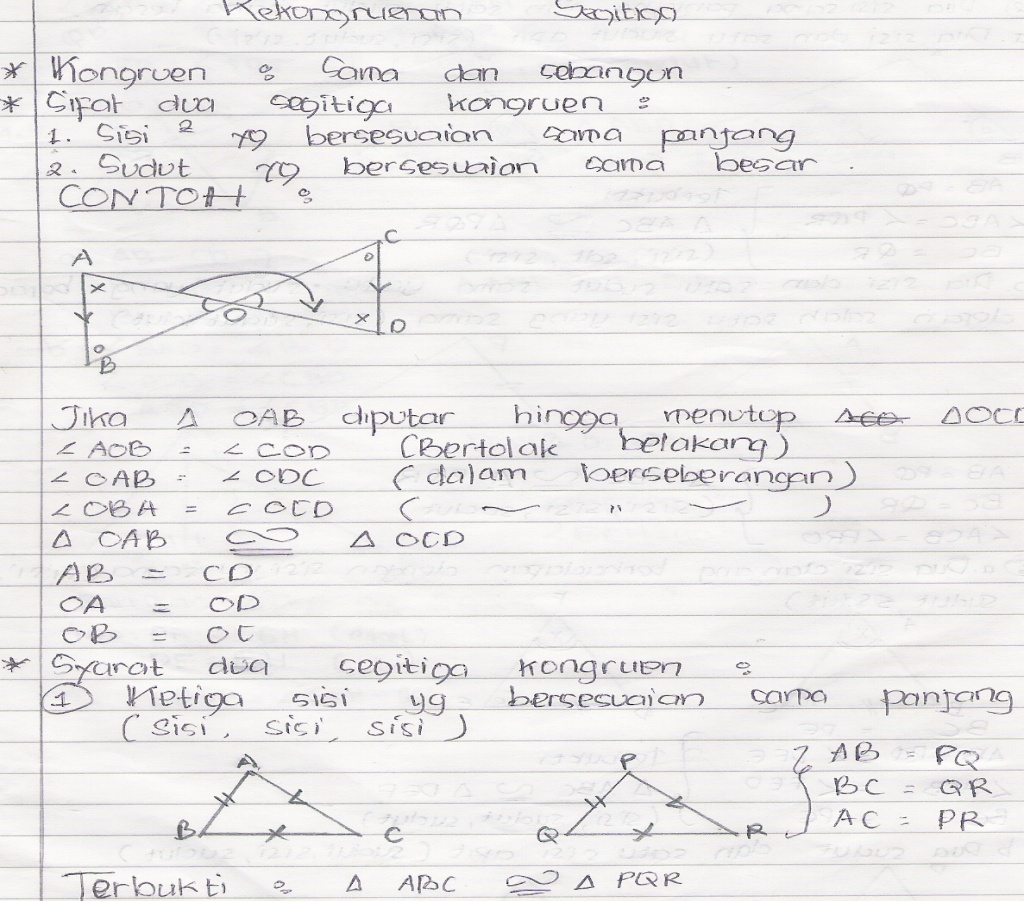 Kekongruenan Segitiga
* Kongruen : Sama dan sebangun
* Sifat dua segitiga kongruen :
1. Sisi ² yg bersesuaian sama panjang
2. Sudut yg bersesuaian sama besar .
CONTOH :
A
C
x
o
O
x
D
o
B
Jika Δ OAB diputar hingga menutup ΔCO ΔOCD
∠ AOB = ∠ COD (Bertolak belakang)
∠ OAB = ∠ ODC (dalam berseberangan)
∠ OBA = ∠ OCD ( ~ " ~ )
Δ OAB ≅ Δ OCD
AB = CD
OA = OD
OB = OC
* Syarat dua segitiga kongruen :
1 Ketiga sisi yg bersesuaian sama panjang
(sisi, sisi, sisi)
A
B
C
P
Q
R
AB = PQ
BC = QR
AC = PR
Terbukti : Δ ABC ≅ Δ PQR